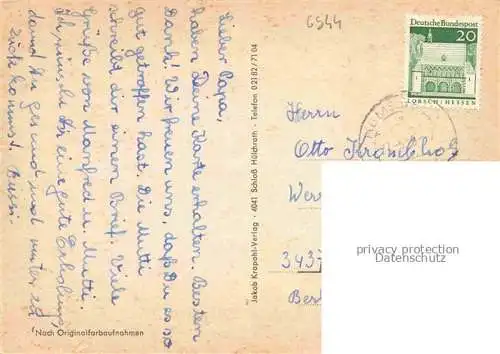 6544
Deutsche Bundespost
20
LORSCH/HESSEN
Lieber Papa,
haben Deine Karte erhalten. Besten
Dank! Wir freuen uns, daß Du es so
gut getroffen hast. Die Mutti
schreibt dir einen Brief. Viele
Grüße von Manfred u. Mutti.
Ich wünsche Dir eine gute Erholung,
damit Du gesund und munter
zurück kommst. Bussi.
Nach Originalfarbaufnahmen
Jakob Krapohl-Verlag · 4041 Schloß Hülchrath · Telefon 02182/7104
Herrn
Otto
Wer
3437
Best
privacy protection
Datenschutz